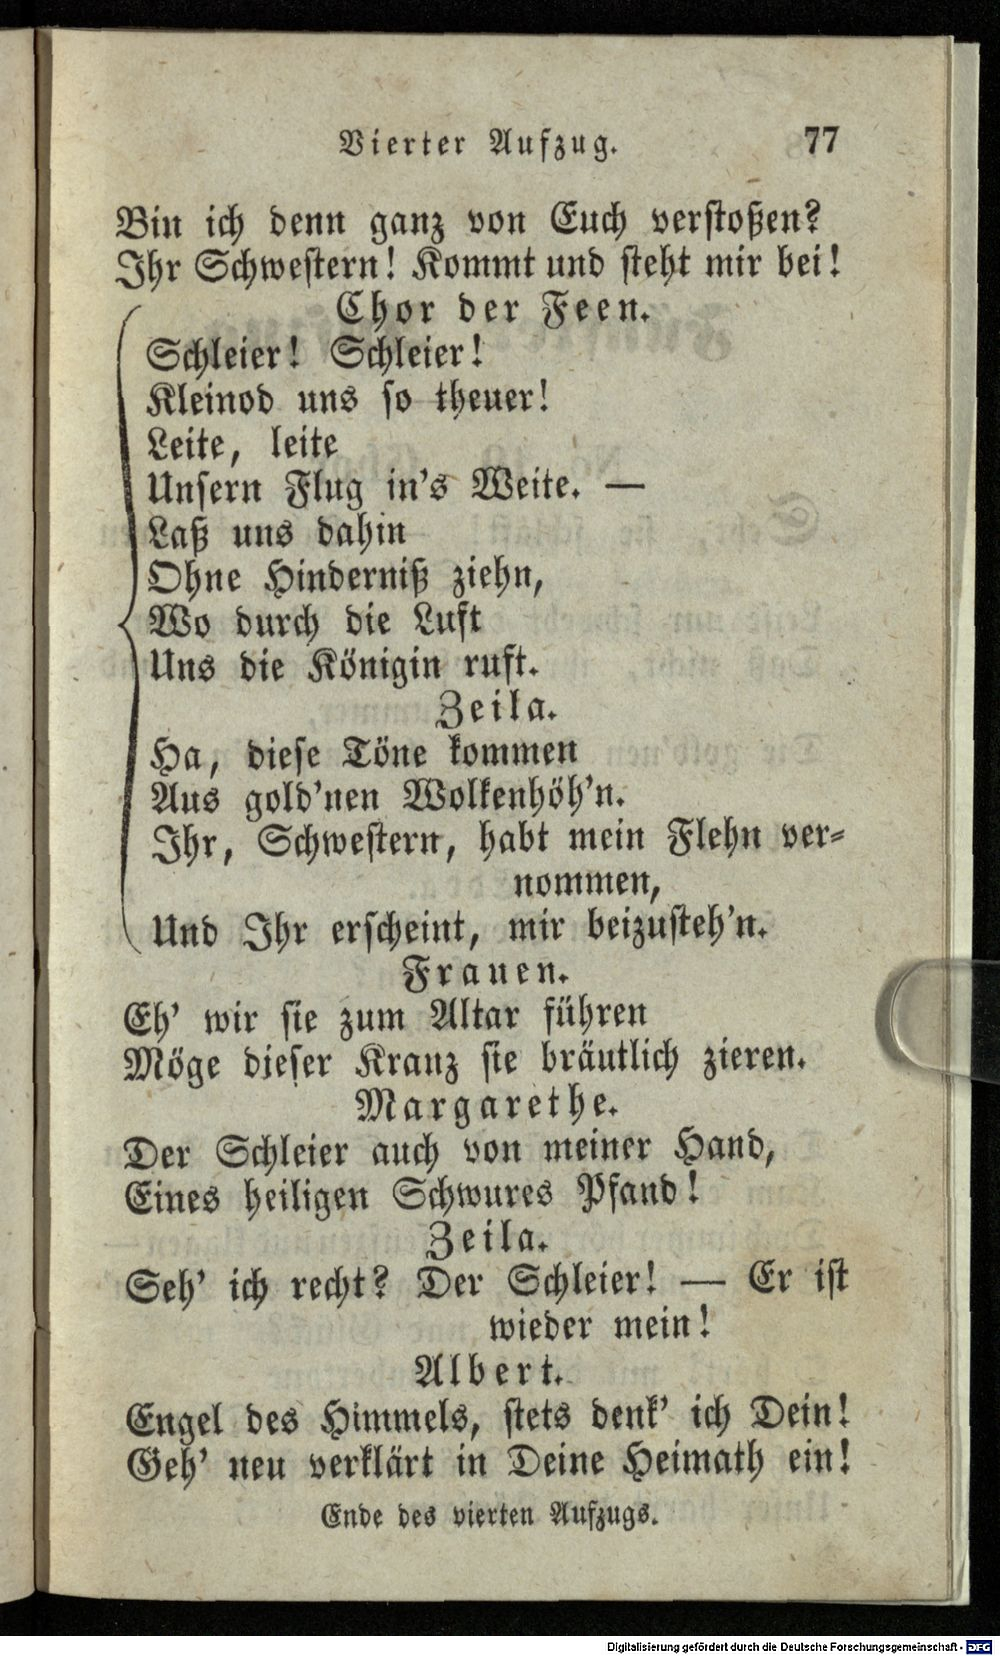 Vierter Aufzug. 77
Bin ich denn ganz von Euch verstoßen?
Ihr Schwestern! Kommt und steht mir bei!
Chor der Feen.
Schleier! Schleier!
Kleinod uns so theuer!
Leite, leite
Unsern Flug in's Weite. —
Laß uns dahin
Ohne Hinderniß ziehn,
Wo durch die Luft
Uns die Königin ruft.
Zeila.
Ha, diese Töne kommen
Aus gold'nen Wolkenhöh'n.
Ihr, Schwestern, habt mein Flehn ver-
nommen,
Und Ihr erscheint, mir beizusteh'n.
Frauen.
Eh' wir sie zum Altar führen
Möge dieser Kranz sie bräutlich zieren.
Margarethe.
Der Schleier auch von meiner Hand,
Eines heiligen Schwures Pfand!
Zeila.
Seh' ich recht? Der Schleier! — Er ist
wieder mein!
Albert.
Engel des Himmels, stets denk' ich Dein!
Geh' neu verklärt in Deine Heimath ein!
Ende des vierten Aufzugs.
Digitalisierung gefördert durch die Deutsche Forschungsgemeinschaft - DFG